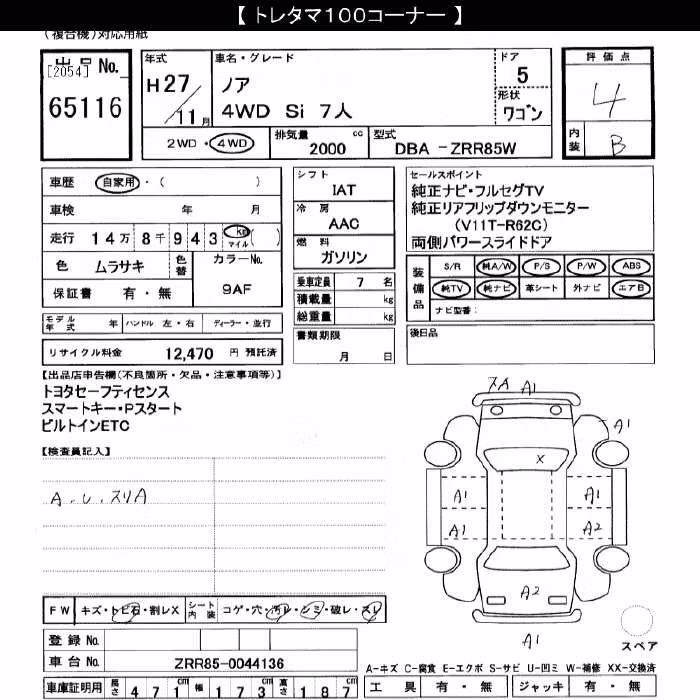 【 トレタマ100コーナー 】
(複合機)対応用紙
出品No.
[2054]
65116
年式
H27/11月
車名・グレード
ノア
4WD Si 7人
ドア
5
形状
ワゴン
評価点
4
内装 B
2WD・4WD
排気量 2000 cc
型式 DBA -ZRR85W
車歴 自家用・( )
車検 年 月
走行 14万8千943 Km マイル ( )
色 ムラサキ
色替
カラーNo.
9AF
保証書 有・無
シフト
IAT
冷房
AAC
燃料
ガソリン
乗車定員 7 名
積載量 kg
総重量 kg
書類期限
月 日
セールスポイント
純正ナビ・フルセグTV
純正リアフリップダウンモニター
(V11T-R62C)
両側パワースライドドア
装備品
S/R 純A/W P/S P/W ABS
純TV 純ナビ 革シート 外ナビ エアB
ナビ型番:
後日品
モデル年式 年 ハンドル 左・右 ディーラー・並行
リサイクル料金 12,470 円 預託済
【出品店申告欄(不良箇所・欠品・注意事項等)】
トヨタセーフティセンス
スマートキー・Pスタート
ビルトインETC
【検査員記入】
A.U.スリA
スA A1
A1
X
A1 A1
A1 A2
A2
A1
スペア
FW キズ・トビ石・割レX
シート内装 コゲ・穴・汚レ・シミ・破レ・スレ
登録No.
車台No. ZRR85-0044136
車庫証明用 長さ 471cm 幅 173cm 高さ 187cm
A-キズ C-腐食 E-エクボ S-サビ U-凹ミ W-補修 XX-交換済
工具 有・無 ジャッキ 有・無